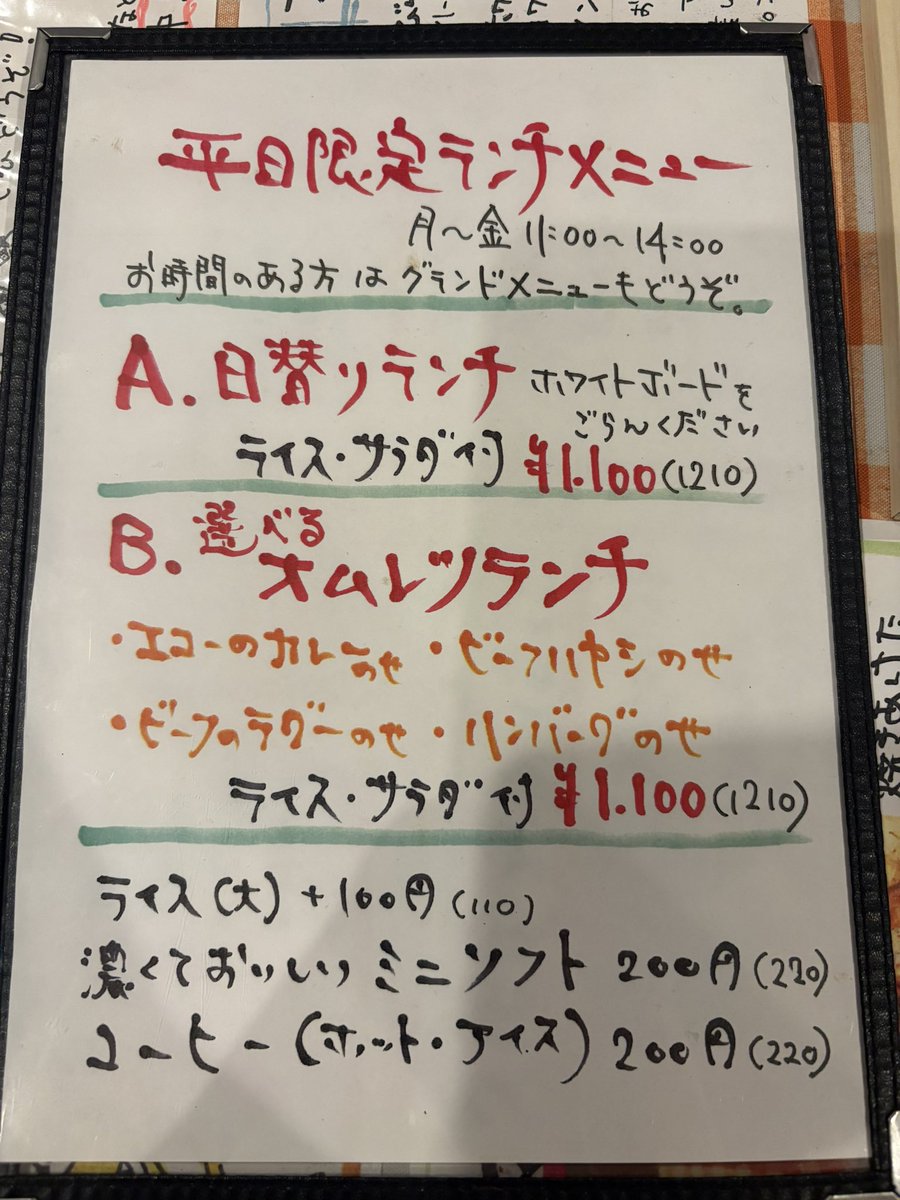 平日限定ランチメニュー
月〜金 11:00〜14:00
お時間のある方は グランドメニューもどうぞ。
A. 日替りランチ ホワイトボードを
ごらんください
ライス・サラダ付 ¥1.100(1210)
B. 選べる
オムレツランチ
・エコーのカレーのせ ・ビーフハヤシのせ
・ビーフのラグーのせ ・ハンバーグのせ
ライス・サラダ付 ¥1.100(1210)
ライス(大) +100円(110)
濃くておいしい ミニソフト 200円(220)
コーヒー(ホット・アイス) 200円(220)